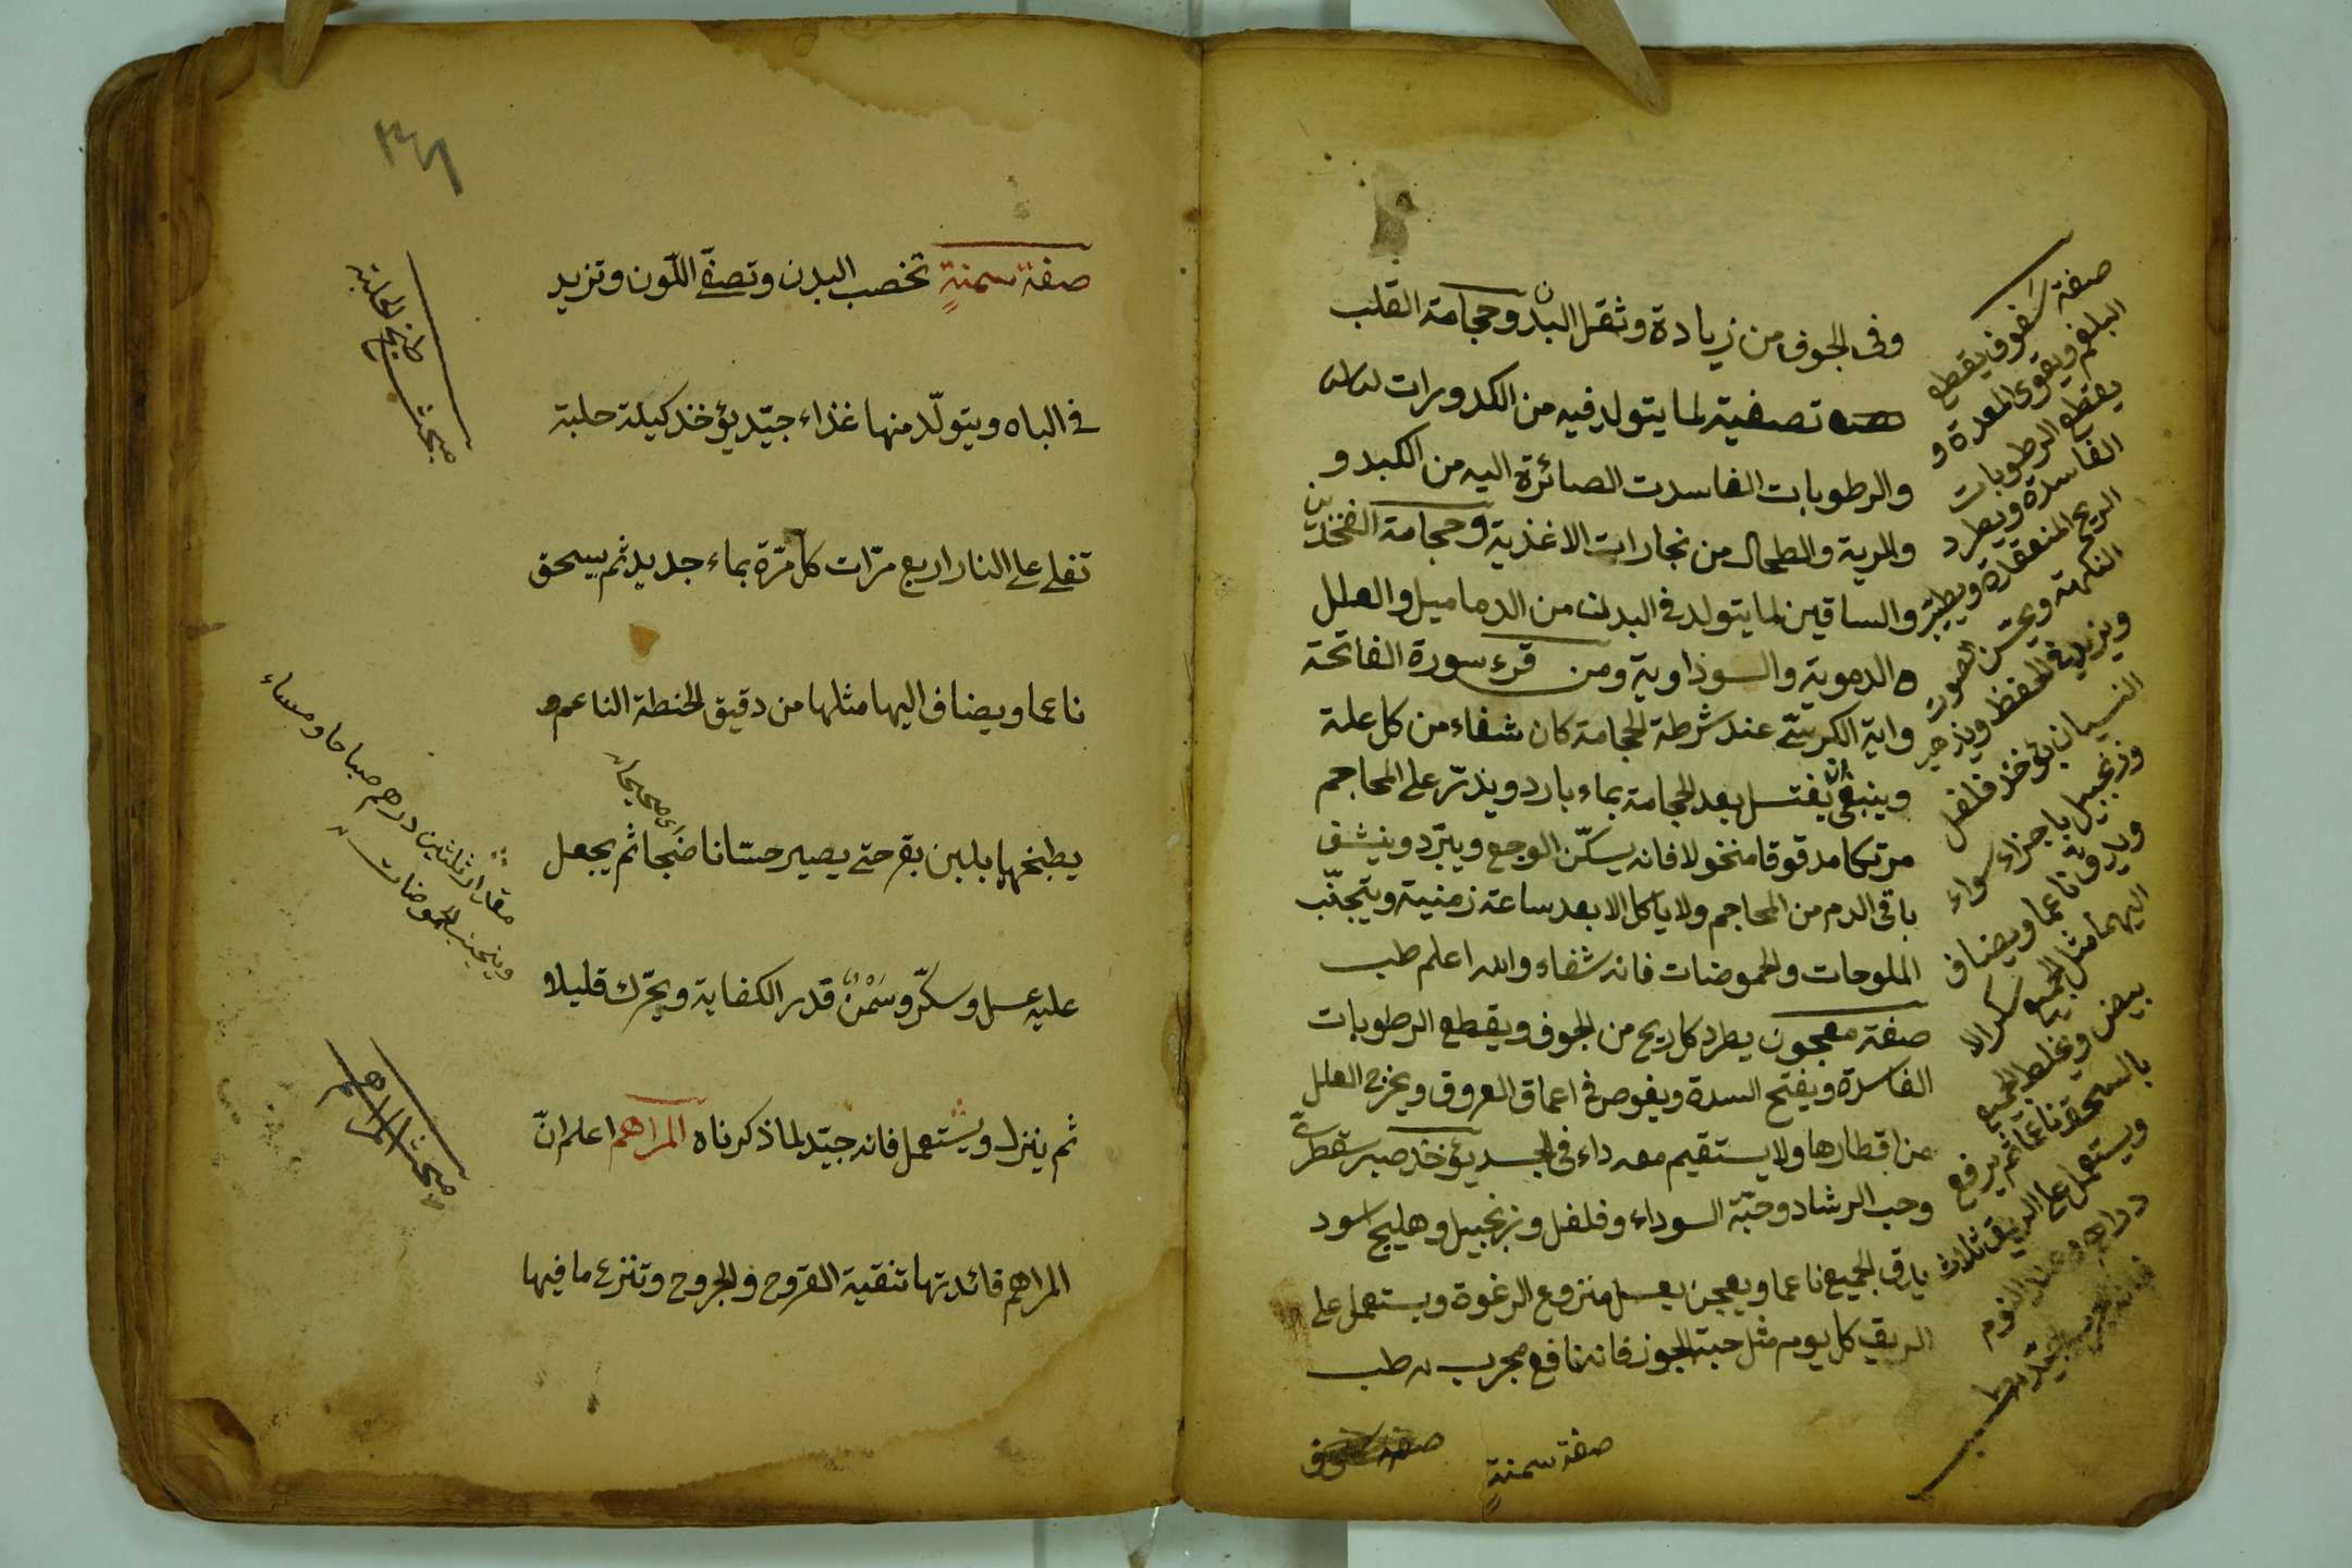 وفى الجوف من زيادة وثقل البدن وحجامة القلب
تصفية لما يتولد فيه من الكدورات
والرطوبات الفاسدت الصائرة اليه من الكبد و
والرية والطحال من بخارات الاغذية وحجامة الفخذين
والساقين لما يتولد فى البدن من الدماميل والعلل
ه الدموية والسوذاوية ومن قرء سورة الفاتحة
واية الكرسىّ عند شرطة الحجامة كان شفاء من كل علة
وينبغى ان يغتسل بعد الحجامة بماء بارد ويذرّ على المحاجم
مرتكا مدقوقا منخولا فانه يسكّن الوجع ويبرّد وينشف
باقى الدم من المحاجم ولا ياكل الا بعد ساعة زمنية ويتجنّب
الملوحات والحموضات فانه شفاء والله اعلم طب
صفة معجون يطرد كل ريح من الجوف ويقطع الرطوبات
الفاسدة ويفتح السدة ويغوص فى اعماق العروق ويخرج العلل
من اقطارها ولا يستقيم معه داء فى الجسد يؤخذ صبر سقطرىّ
وحب الرشاد وحبّة السوداء وفلفل وزنجبيل وهليج اسود
يدق الجميع ناعما ويعجن بعسل منزوع الرغوة ويستعمل على
الريق كل يوم مثل حبة الجوز فانه نافع مجرب طب
صفة سمنةٍ
صفة سفوف يقطع
البلغم ويقوى المعدة و
يقطع الرطوبات
الفاسدة ويطرد
الريح المنعقدة ويطيّب
النكهة ويحسّن الصوت
ويزيد فى الحفظ ويذهب
النسيان يؤخذ فلفل
وزنجبيل باجزاء سواء
ويدق ناعما ويضاف
اليهما مثل الجميع سكر الا
بيض ويخلط الجميع
بالسحق ناعما ثم يرفع
ويستعمل على الريق ثلاث
دراهم وعند النوم
فانه مجرب جيّد طب
٣٦١
صفة سمنةٍ تخصب البدن وتصفّى اللّون وتزيد
فى الباه ويتولّد منها غذاء جيّد يؤخذ كيلة حلبة
تغلى على النار اربع مرّات كل مرّة بماء جديد ثم يسحق
ناعما ويضاف اليها مثلها من دقيق الحنطة الناعم و
يطبخها بلبن بقر حتى يصير حسّانا ضجا ثم يجعل
عليه عسل وسكّر وسَمْنٌ قدر الكفاية ويحرّك قليلا
ثم ينزل ويستعمل فانه جيّد لما ذكرناه المراهم اعلم انّ
المراهم فائدتها تنقية القروح والجروح وتنزع ما فيها
مبحث طبخ الحلبة
مقدار ثلثين درهم صباحا ومساء
ويتجنب الحموضات
مبحث المراهم